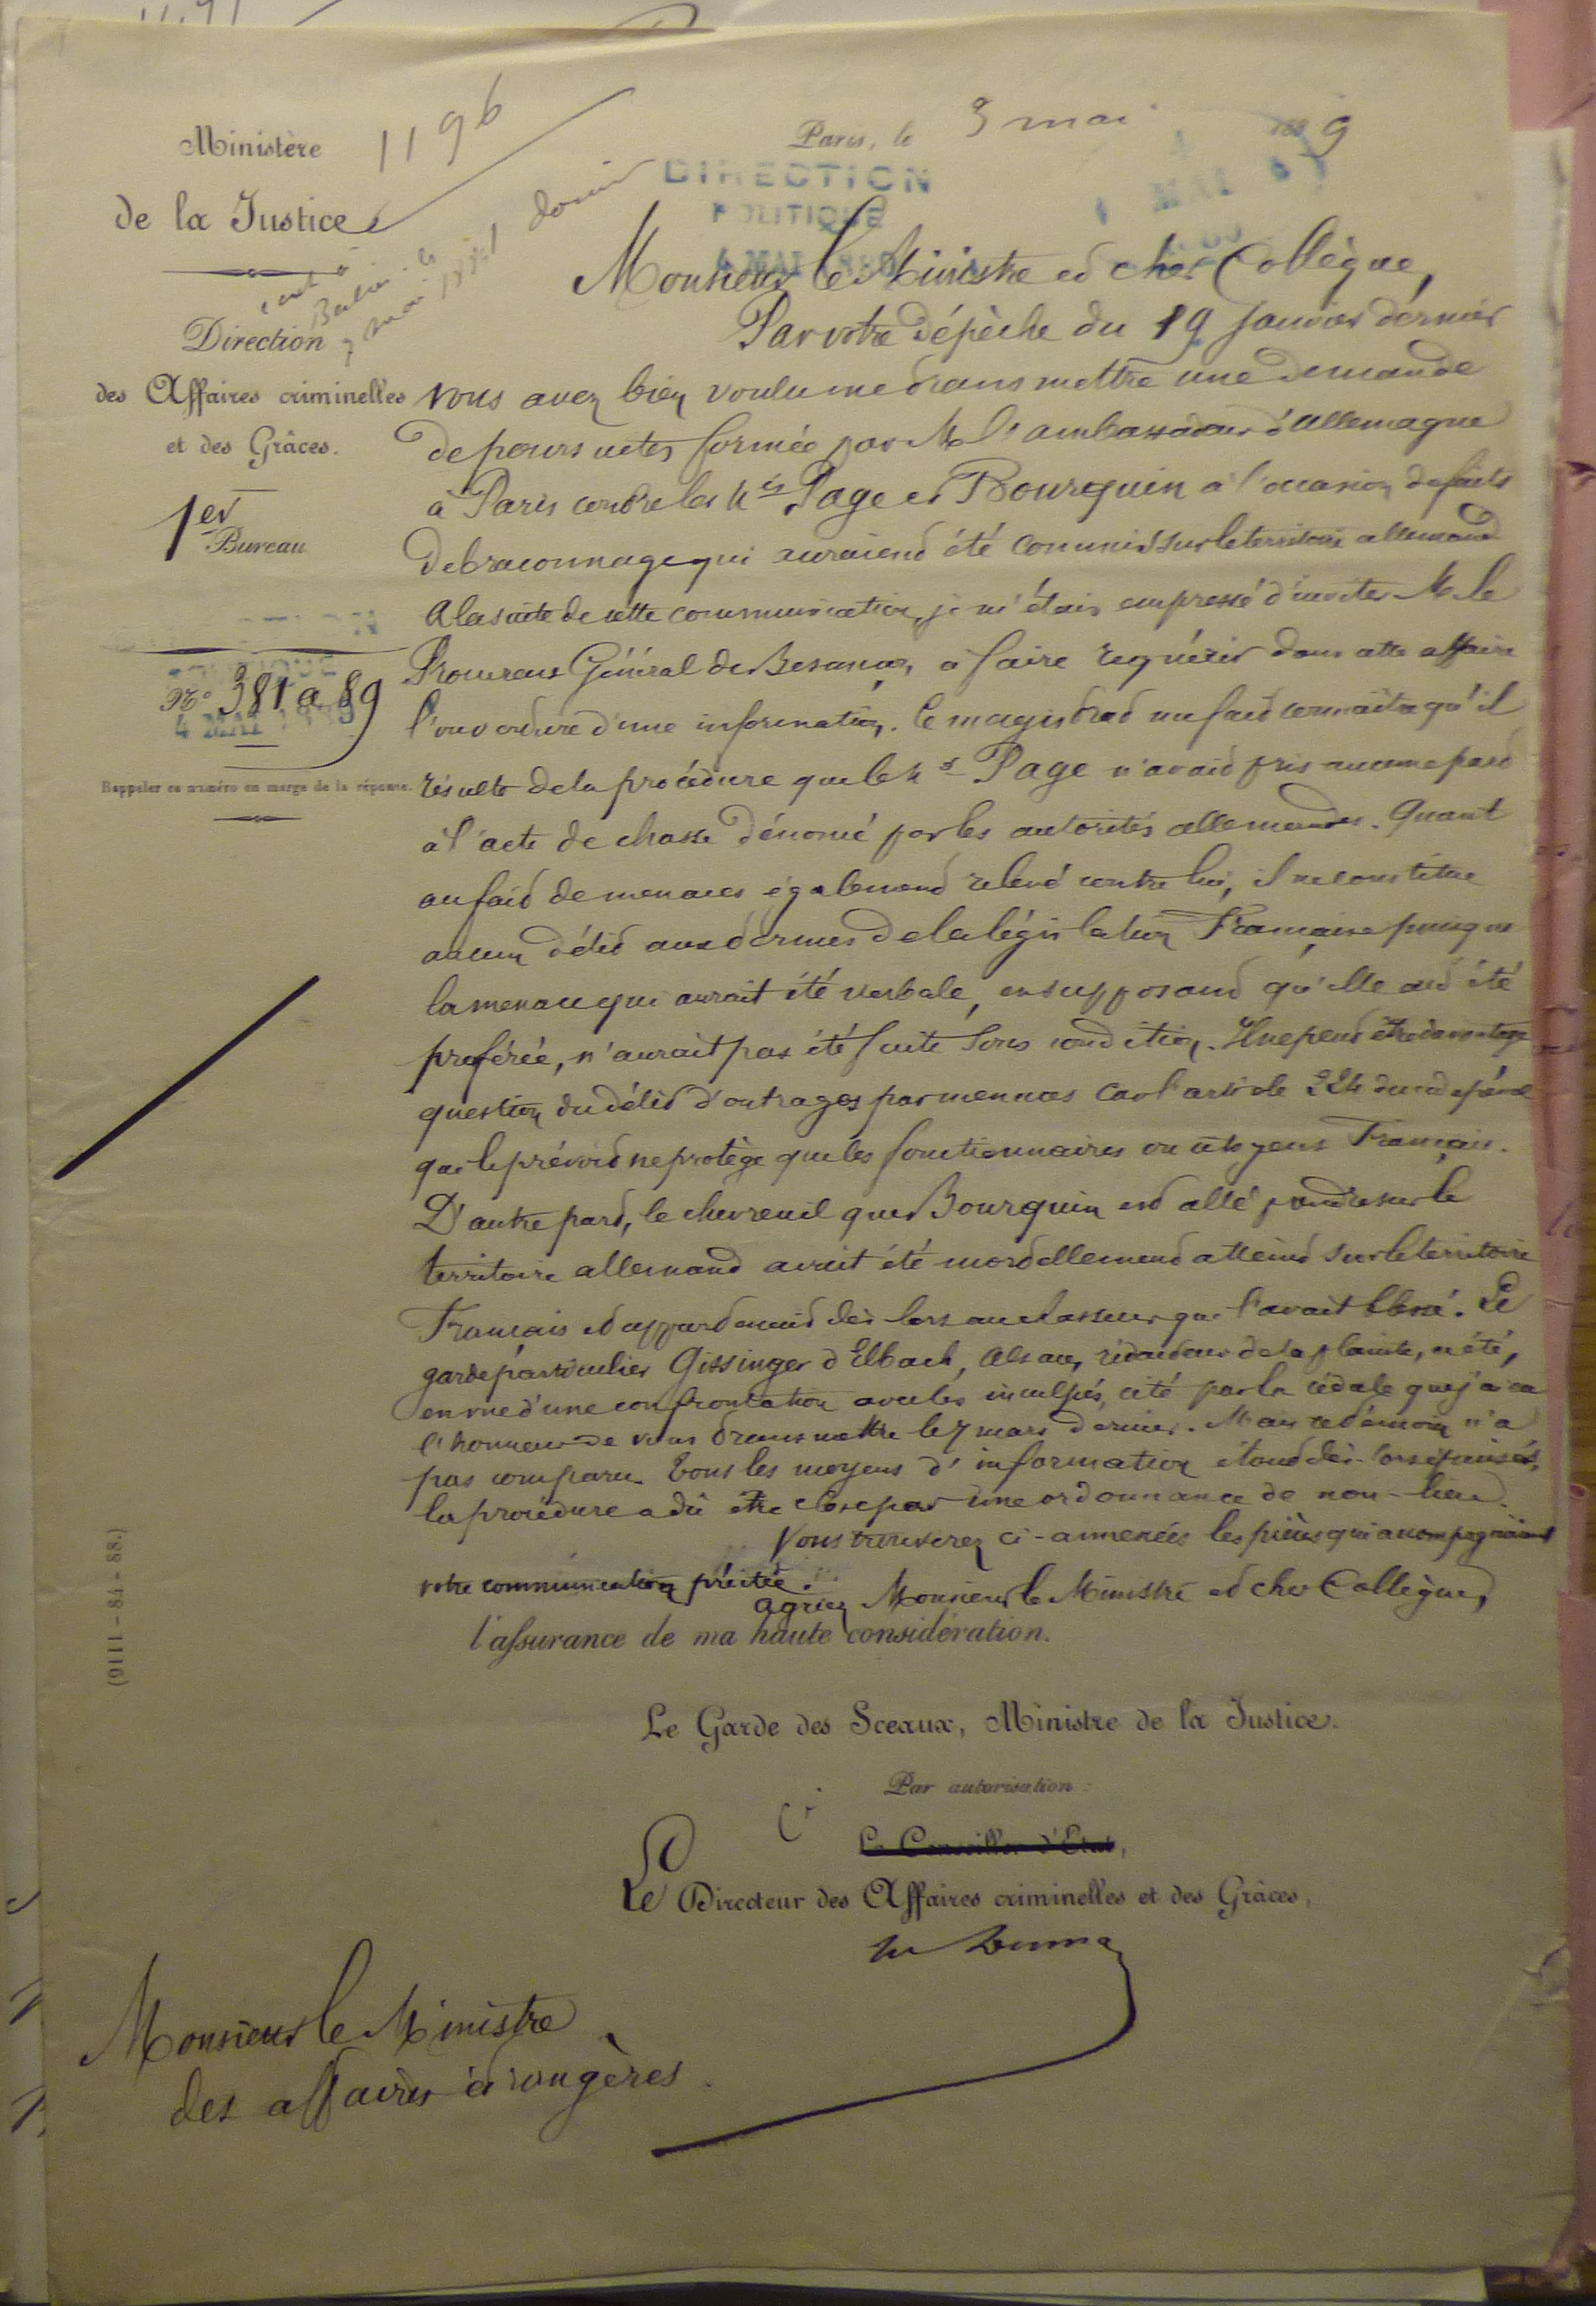 Ministère
de la Justice
1196
Direction
des Affaires criminelles
et des Grâces.
1er
Bureau
N° 381 a 89
4 MAI 1889
Rappeler ce numéro en marge de la réponse.
Paris, le 3 mai 1889
DIRECTION
POLITIQUE
4 MAI 1889
Monsieur le Ministre et cher Collègue,
Par votre dépêche du 19 Janvier dernier
vous avez bien voulu me transmettre une demande
de poursuites formée par M. l'ambassadeur d'allemagne
à Paris contre les nés Page et Bourquin à l'occasion de faits
de braconnage qui auraient été commis sur le territoire allemand
A la suite de cette communication, je m'étais empressé d'inviter M. le
Procureur Général de Besançon, à faire requérir dans cette affaire
l'ouverture d'une information. Ce magistrat me fait connaître qu'il
résulte de la procédure que le né Page n'avait pris aucune part
à l'acte de chasse dénoncé par les autorités allemandes. Quant
au fait de menaces également relevé contre lui, il ne constitue
aucun délit aux termes de la législation Française puisque
la menace qui aurait été verbale, en supposant qu'elle ait été
proférée, n'aurait pas été faite sous condition. Il ne peut être davantage
question du délit d'outrages par menaces car l'article 224 du code pénal
qui le prévoit ne protège que les fonctionnaires ou citoyens Français.
D'autre part, le chevreuil que Bourquin est allé prendre sur le
territoire allemand avait été mortellement atteint sur le territoire
Français et appartenait dès lors au chasseur qui l'avait blessé. Le
garde particulier Gissinger d'Elbach, Alsace, rédacteur de la plainte, a été,
en vue d'une confrontation avec les inculpés, cité par la cédule que j'ai eu
l'honneur de vous transmettre le 7 mars dernier. Mais ce témoin n'a
pas comparu. Tous les moyens d'information étant dès-lors épuisés,
la procédure a dû être close par une ordonnance de non-lieu.
Vous trouverez ci-annexées les pièces qui accompagnaient
votre communication précitée.
Agréez Monsieur le Ministre et cher Collègue,
l'assurance de ma haute considération.
(9111-84-88.)
Le Garde des Sceaux, Ministre de la Justice.
Par autorisation :
Le Conseiller d'État,
Le Directeur des Affaires criminelles et des Grâces,
Monsieur le Ministre
des affaires étrangères.